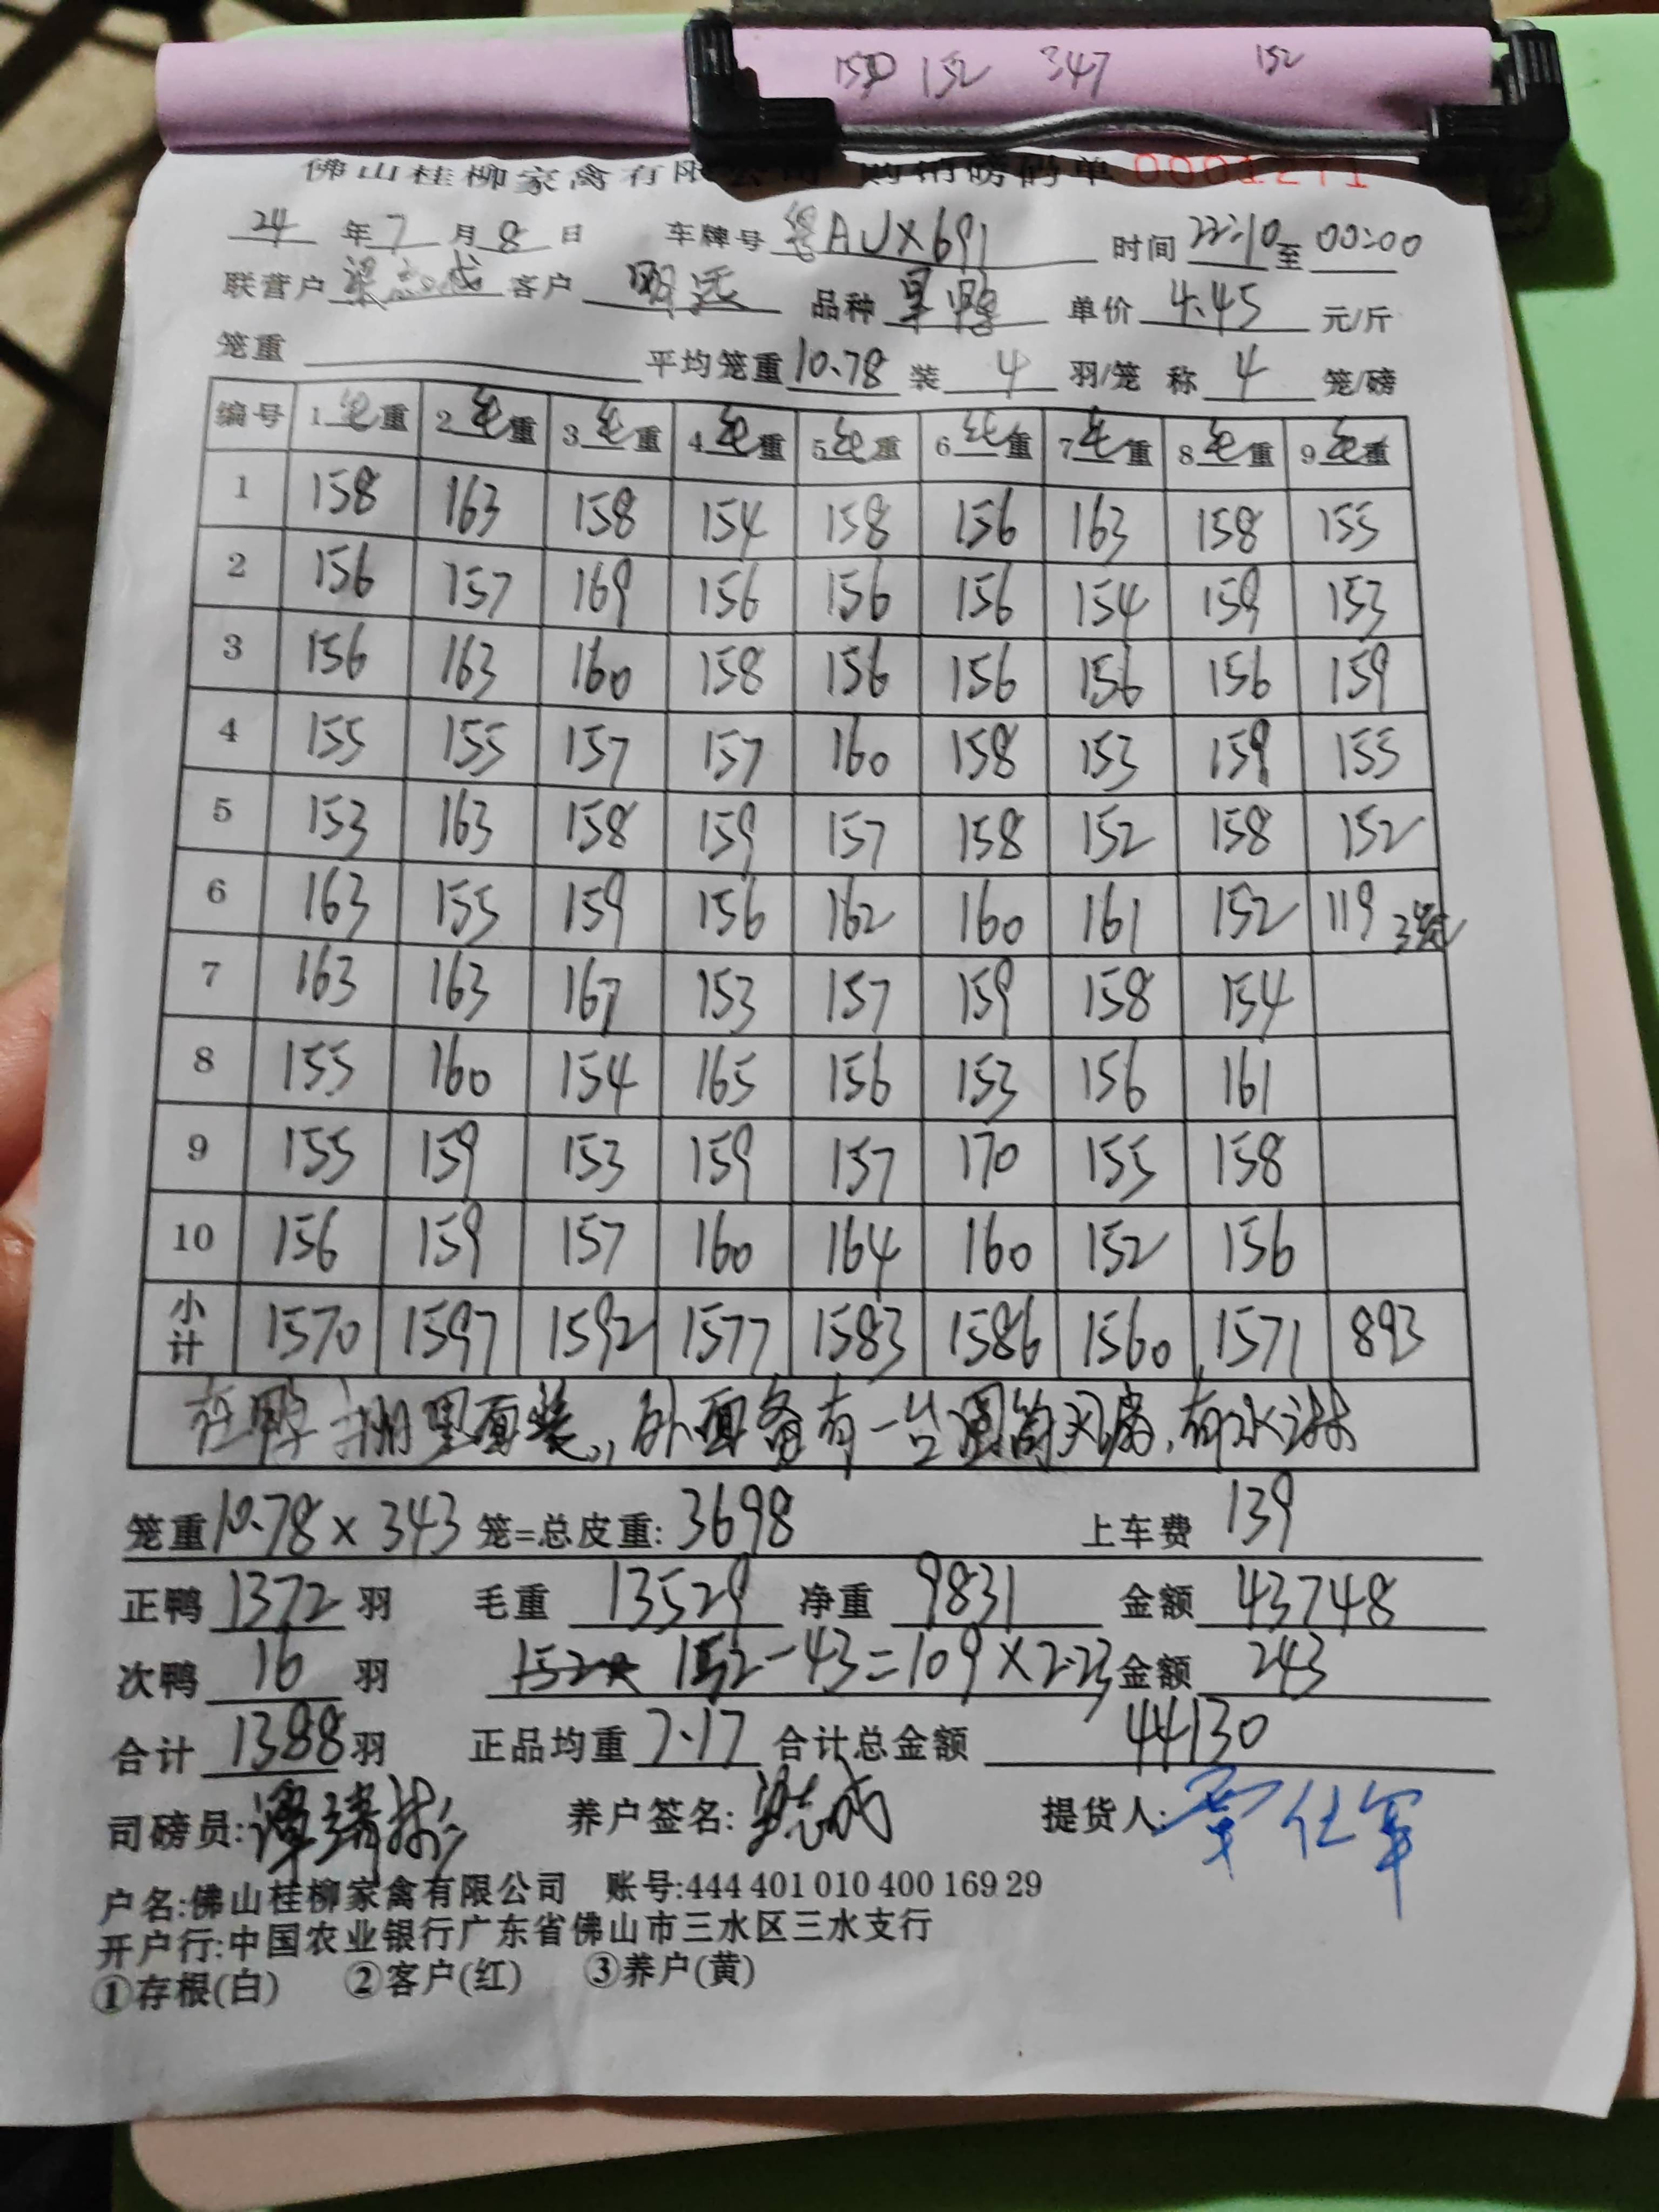 150 152 347 152
佛山桂柳家禽有限公司 购销磅码单 0001271
24 年 7 月 8 日 车牌号 粤AUX691 时间 22:10 至 00:00
联营户 梁志成 客户 明远 品种 旱鸭 单价 4.45 元/斤
笼重 平均笼重 10.78 装 4 羽/笼 称 4 笼/磅
编号 1毛重 2毛重 3毛重 4毛重 5毛重 6毛重 7毛重 8毛重 9毛重
1 158 163 158 154 158 156 163 158 155
2 156 157 169 156 156 156 154 159 153
3 156 163 160 158 156 156 156 156 159
4 155 155 157 157 160 158 153 159 155
5 153 163 158 159 157 158 152 158 152
6 163 155 159 156 162 160 161 152 119 3笼
7 163 163 167 153 157 159 158 154
8 155 160 154 165 156 153 156 161
9 155 159 153 159 157 170 155 158
10 156 159 157 160 164 160 152 156
小计 1570 1597 1592 1577 1583 1586 1560 1571 893
在鸭棚里面装,外面备有一台圆筒风扇,有水淋
笼重 10.78 × 343 笼=总皮重: 3698 上车费 139
正鸭 1372 羽 毛重 13529 净重 9831 金额 43748
次鸭 16 羽 152-43=109×2.23 金额 243
合计 1388 羽 正品均重 7.17 合计总金额 44130
司磅员: 养户签名: 梁志成 提货人: 覃仕军
户名:佛山桂柳家禽有限公司 账号:444 401 010 400 169 29
开户行:中国农业银行广东省佛山市三水区三水支行
①存根(白) ②客户(红) ③养户(黄)